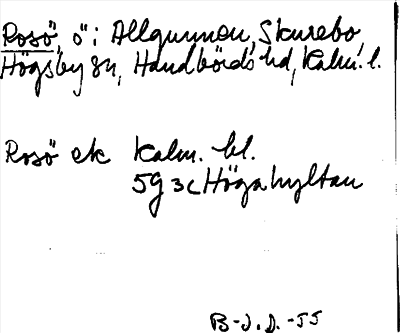 Rosö, ö i Allgunnen, Skurebo,
Högsby sn, Handbörds hd, Kalm. l.
Rosö ek Kalm. bl.
5G 3c Högahyltan
B-J. D. -55